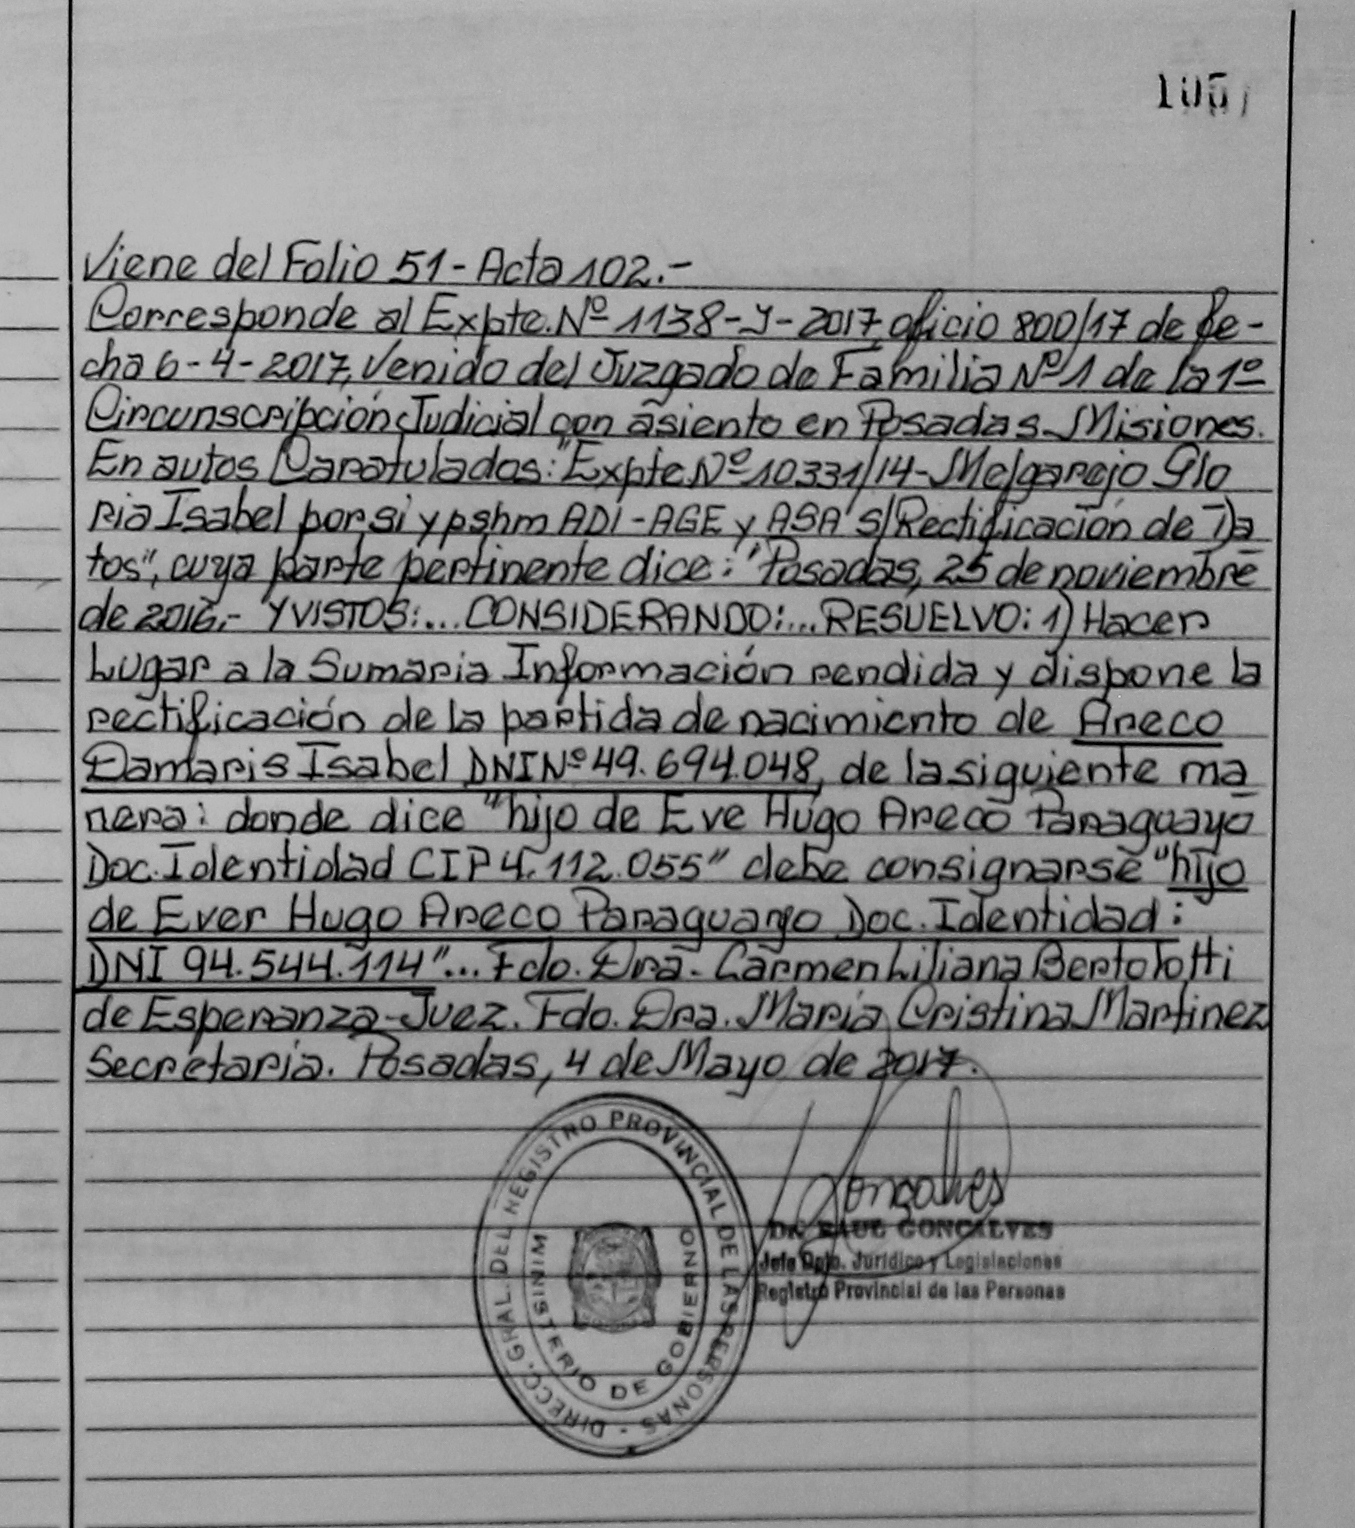 Viene del Folio 51-Acta 102.-
Corresponde al Expte. Nº 1138-Y-2017, oficio 800/17 de fe-
cha 6-4-2017, Venido del Juzgado de Familia Nº 1 de la 1º
Circunscripción Judicial con asiento en Posadas-Misiones.
En autos Caratulados: "Expte Nº 10331/14-Melgarejo Glo
ria Isabel por si y pshm ADI-AGE y ASA S/Rectificación de Da
tos", cuya parte pertinente dice: "Posadas, 25 de noviembre
de 2016.- Y VISTOS:... CONSIDERANDO:... RESUELVO: 1) Hacer
Lugar a la Sumaria Información rendida y dispone la
rectificación de la partida de nacimiento de Areco
Damaris Isabel DNI Nº 49.694.048, de la siguiente ma
nera: donde dice "hijo de Eve Hugo Areco Paraguayo
Doc. Identidad CIP 4.112.055" debe consignarse "hijo
de Ever Hugo Areco Paraguayo Doc. Identidad:
DNI 94.544.114"... Fdo. Dra. Carmen Liliana Bertolotti
de Esperanza-Juez. Fdo. Dra. María Cristina Martinez
Secretaria. Posadas, 4 de Mayo de 2017.
DIRECC. GRAL. DEL REGISTRO PROVINCIAL DE LAS PERSONAS -
MINISTERIO DE GOBIERNO
Gonçalves
Dr. RAUL GONCALVES
Jefe Dpto. Jurídico y Legislaciones
Registro Provincial de las Personas